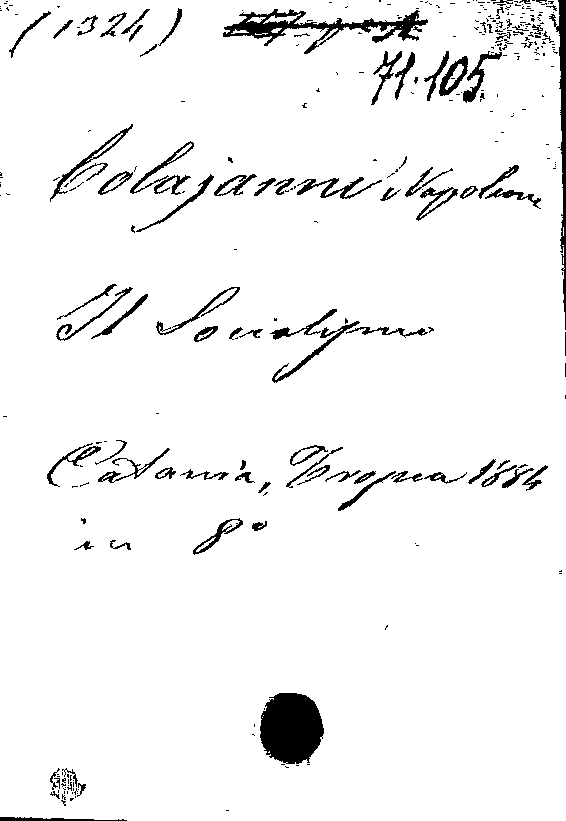 (1324)
71.105
Colajanni Napoleone
Il Socialismo
Catania, Tropea 1884
in 8°